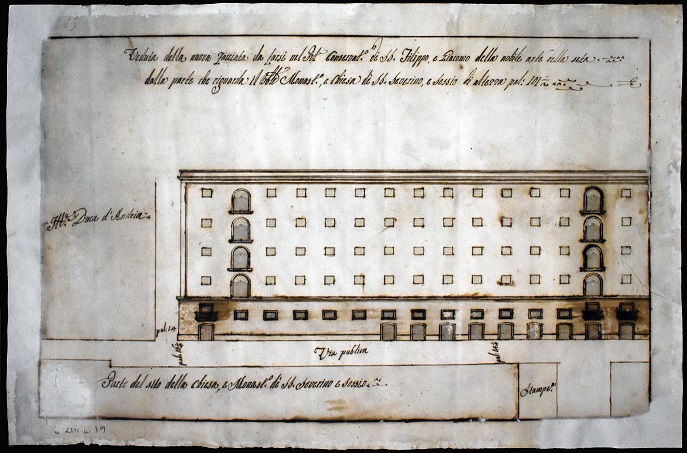 Veduta della nuova facciata da farsi nel Conservat.º di SS. Filippo, e Giacomo della nobile arte della seta
dalla parte che riguarda il Monast.º, e Chiesa di SS. Severino, e Sossio di altezza pal. 101
Duca d'Andria
pal. 14
Via publica
Parte del sito della Chiesa, e Monast.º di SS. Severino e Sossio
Stampe.ª
19